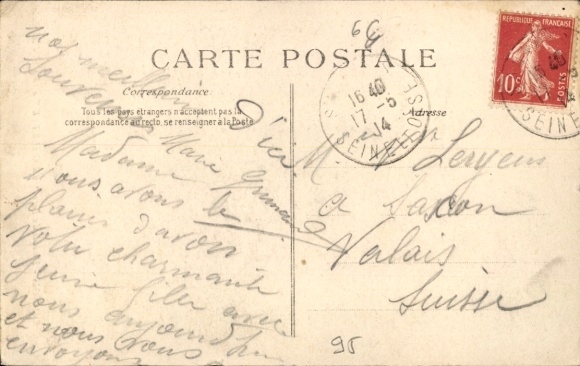 CARTE POSTALE
Correspondance
Tous les pays étrangers n'acceptent pas la
correspondance au recto, se renseigner à la Poste
Adresse
REPUBLIQUE FRANÇAISE
10c
POSTES
16 40
17 - 5
14
SEINE
SEINE
64
nos meilleurs
Souvenirs
D'ici
Marie
Madame
nous avons le
plaisir d'avoir
votre charmante
jeune fille avec
nous aujourd'hui
et nous vous
envoyons
M
a Saxon
Valais
Suisse
95